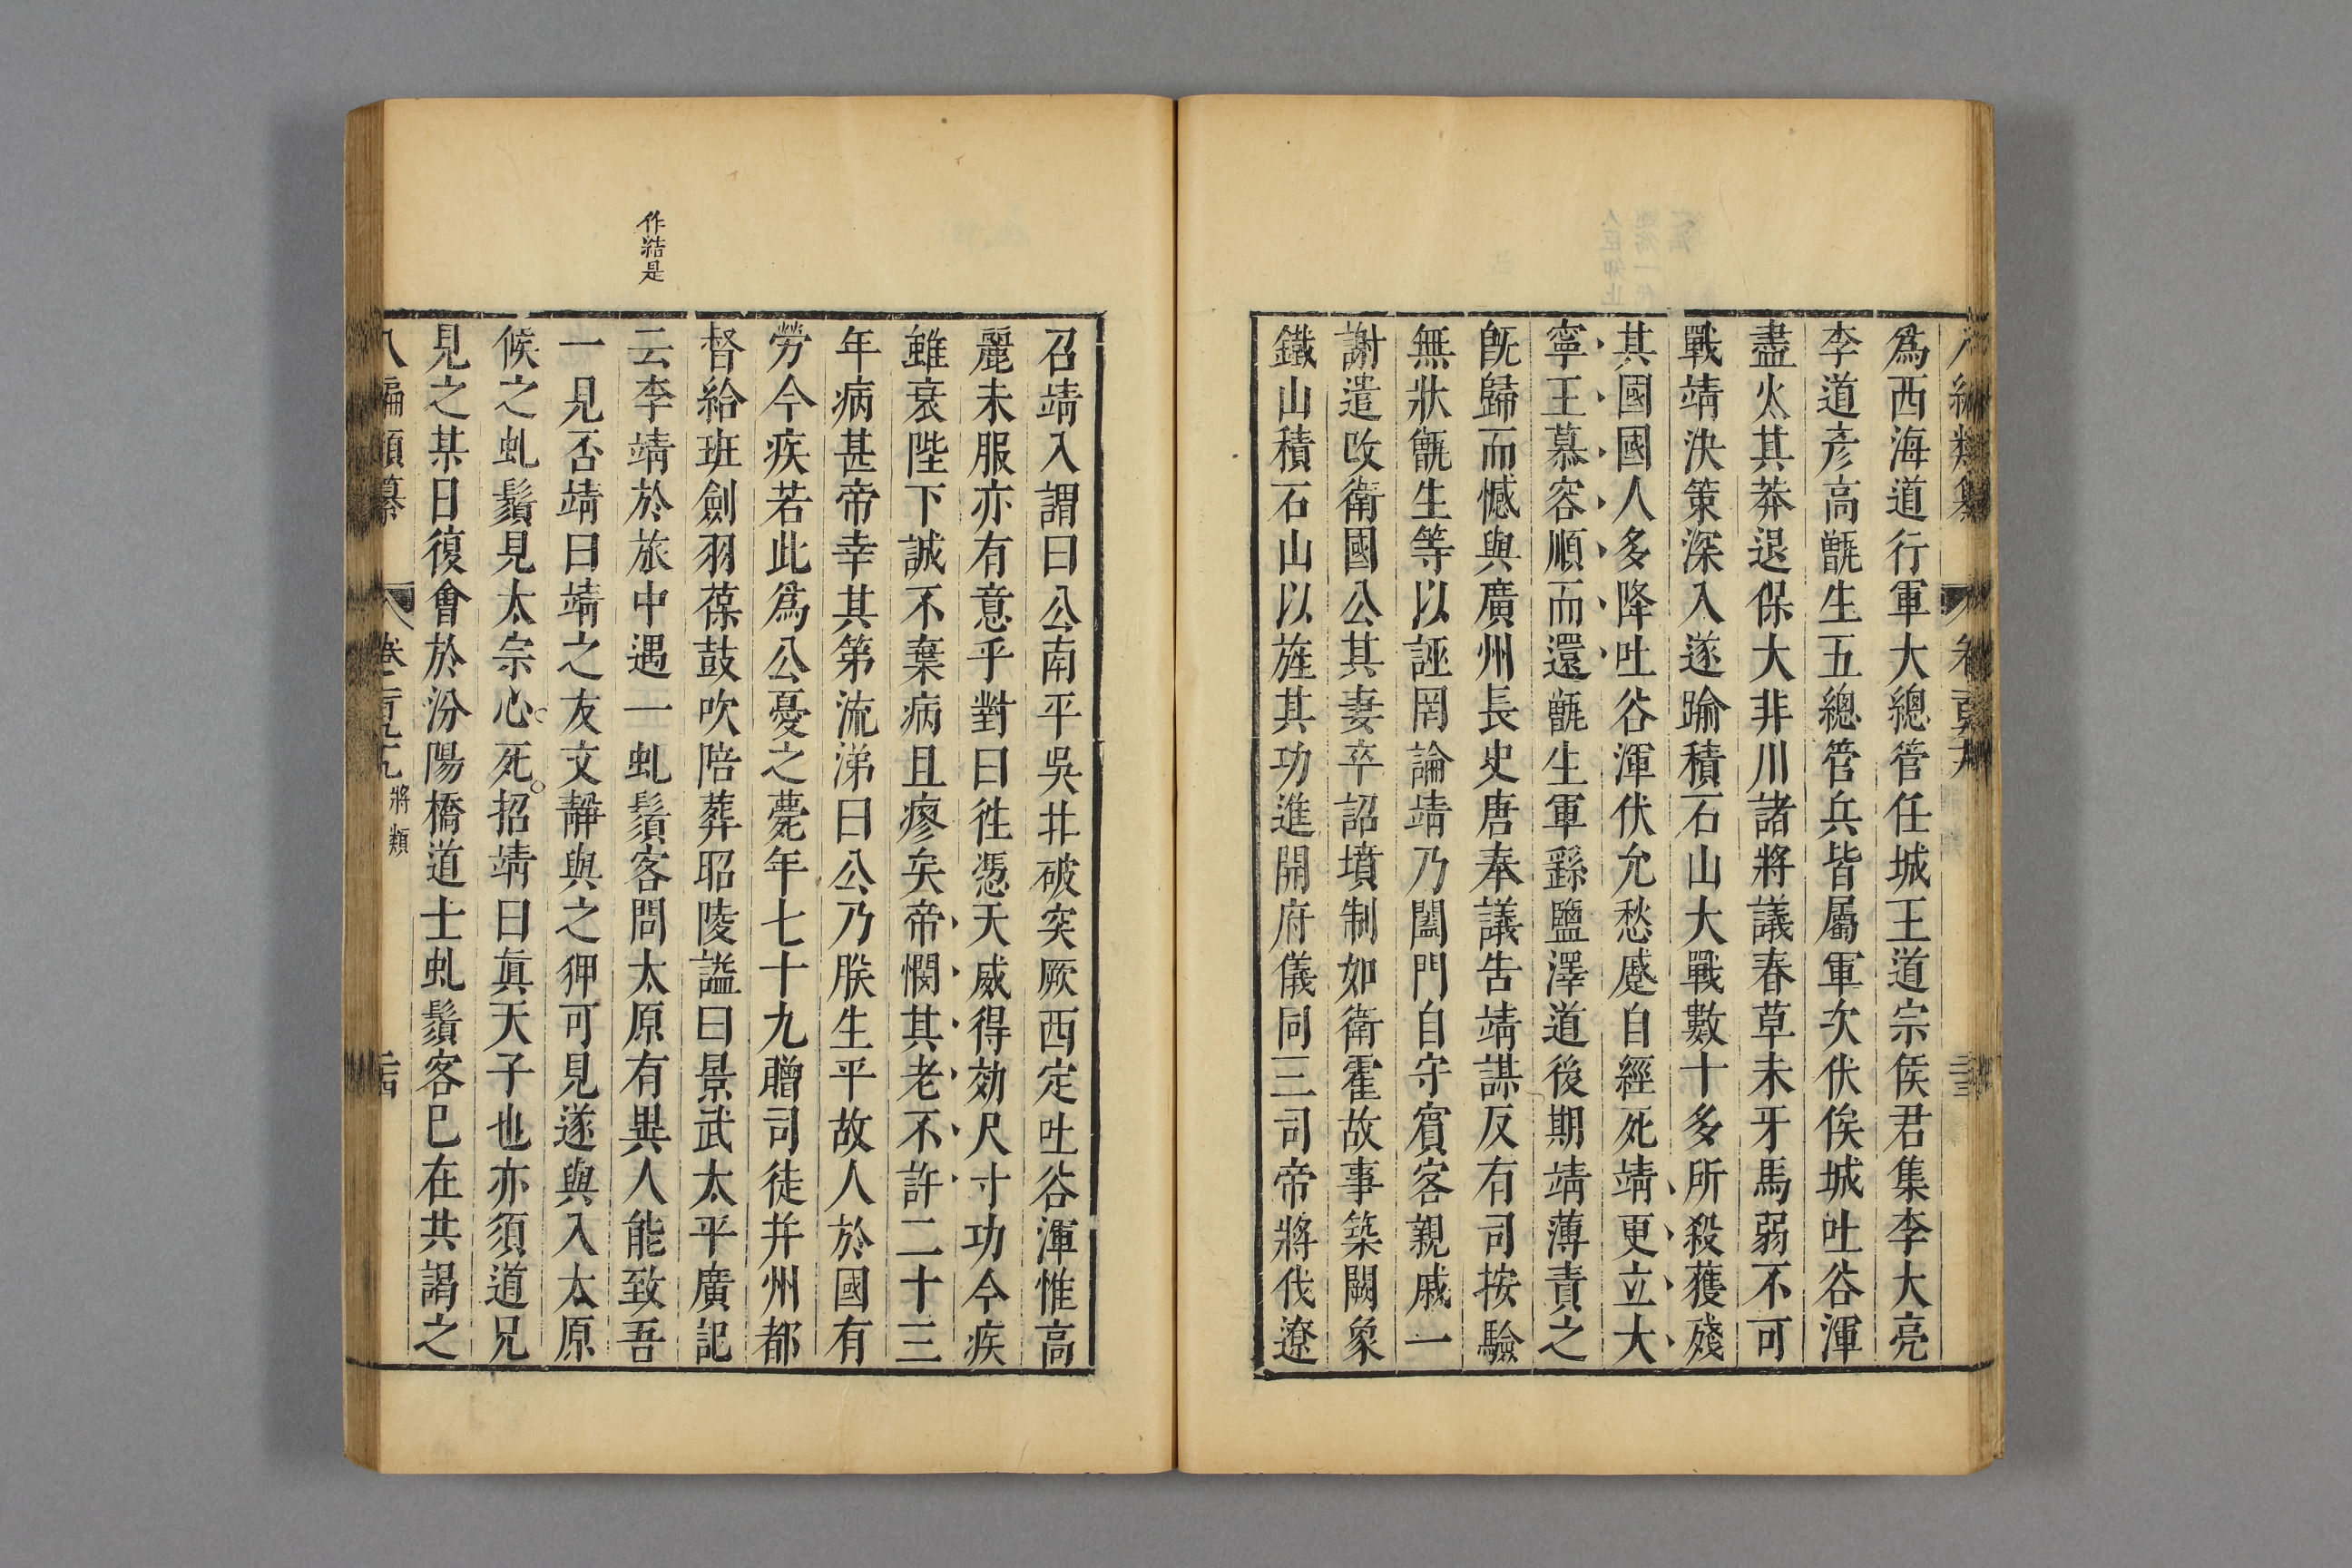 爲西海道行軍大總管任城王道宗侯君集李大亮
李道彥高甑生五總管兵皆屬軍次伏俟城吐谷渾
盡火其莽退保大非川諸將議春草未牙馬弱不可
戰靖決策深入遂踰積石山大戰數十多所殺獲殘
其國國人多降吐谷渾伏允愁蹙自經死靖更立大
寧王慕容順而還甑生軍繇鹽澤道後期靖薄責之
旣歸而憾與廣州長史唐奉議告靖謀反有司按驗
無狀甑生等以誣罔論靖乃闔門自守賓客親戚一
謝遣改衛國公其妻卒詔墳制如衛霍故事築闕象
鐵山積石山以旌其功進開府儀同三司帝將伐遼
召靖入謂曰公南平吳北破突厥西定吐谷渾惟高
麗未服亦有意乎對曰徃憑天威得効尺寸功今疾
雖衰陛下誠不棄病且瘳矣帝憫其老不許二十三
年病甚帝幸其第流涕曰公乃朕生平故人於國有
勞今疾若此爲公憂之薨年七十九贈司徒幷州都
督給班劍羽葆鼓吹陪葬昭陵謚曰景武太平廣記
云李靖於旅中遇一虬鬚客問太原有異人能致吾
一見否靖曰靖之友文靜與之狎可見遂與入太原
候之虬鬚見太宗心死招靖曰眞天子也亦須道兄
見之某日復會於汾陽橋道士虬鬚客已在共謁之
八編類纂 卷一百九 將類 二十四
作結是